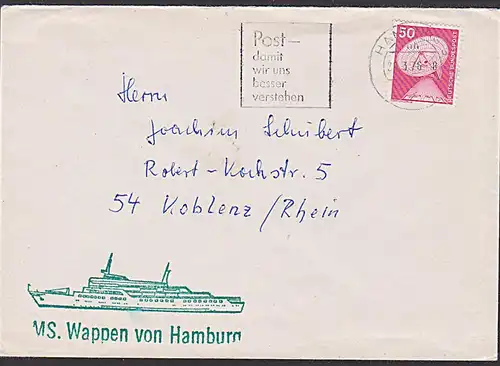 Post —
damit
wir uns
besser
verstehen
50
DEUTSCHE BUNDESPOST
Herrn
Joachim Schubert
Robert-Kochstr. 5
54 Koblenz/Rhein
MS. Wappen von Hamburg